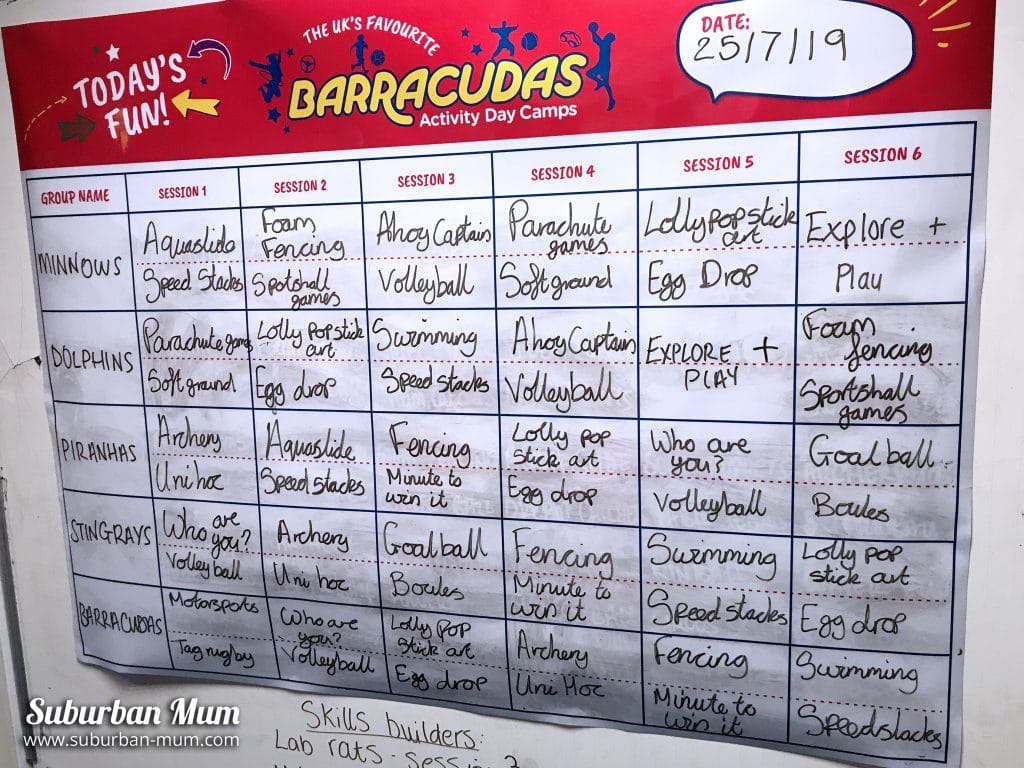 TODAY'S
FUN!
THE UK'S FAVOURITE
BARRACUDAS
Activity Day Camps
DATE:
25/7/19
GROUP NAME SESSION 1 SESSION 2 SESSION 3 SESSION 4 SESSION 5 SESSION 6
MINNOWS
Aquaslide
Speed Stacks
Foam
Fencing
Spotshall
games
Ahoy Captain
Volleyball
Parachute
games
Soft ground
Lollypop stick
art
Egg Drop
Explore +
Play
DOLPHINS
Parachute games
Soft ground
Lolly pop stick
art
Egg drop
Swimming
Speed stacks
Ahoy Captain
Volleyball
EXPLORE +
PLAY
Foam
fencing
Sportshall
games
PIRANHAS
Archery
Uni hoc
Aquaslide
Speed stacks
Fencing
Minute to
win it
Lolly pop
stick art
Egg drop
Who are
you?
Volleyball
Goalball
Boules
STINGRAYS
Who are
you?
Volleyball
Archery
Uni hoc
Goalball
Boules
Fencing
Minute to
win it
Swimming
Speed stacks
Lolly pop
stick art
Egg drop
BARRACUDAS
Motorsports
Tag rugby
Who are
you?
Volleyball
Lolly pop
stick art
Egg drop
Archery
Uni Hoc
Fencing
Minute to
win it
Swimming
Speed stacks
Skills builders:
Lab rats - Session
Suburban Mum
www.suburban-mum.com